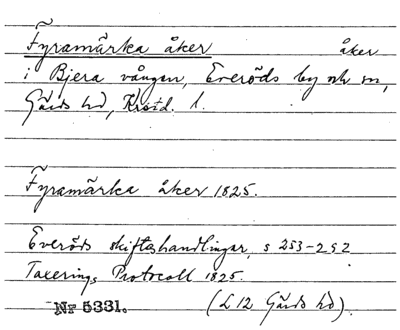 Fyramärka åker åker
i Bjera vången, Everöds by och sn,
Gärds hd, Kristd. l.
Fyramärka åker 1825.
Everöds skifteshandlingar, s 253-252
Taxerings Protocoll 1825.
Nr 5331. (L 12 Gärds hd).